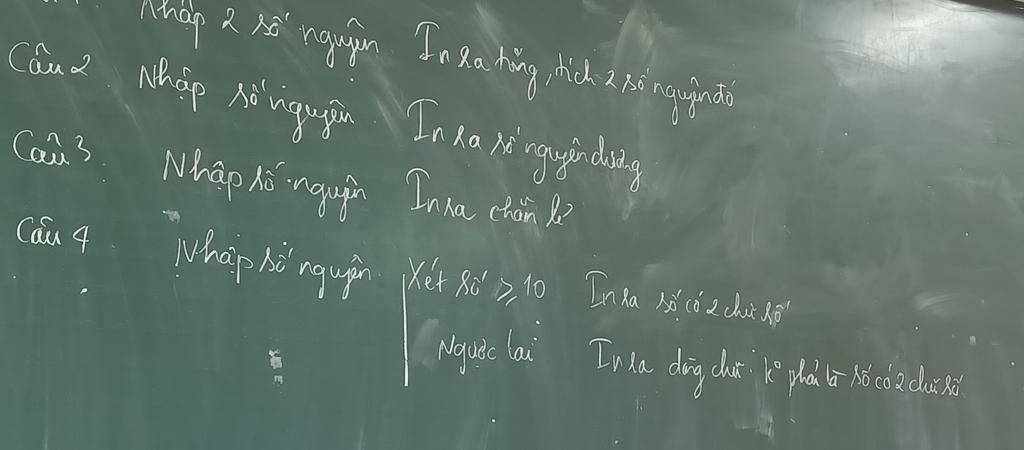 Nhập 2 số nguyên In ra tổng, tích 2 số nguyên đó
Câu 2 Nhập số nguyên In ra số nguyên dương
Câu 3 Nhập số nguyên In ra chẵn lẻ
Câu 4 Nhập số nguyên Xét số ≥ 10 In ra số có 2 chữ số
Ngược lại In ra dòng chữ: k° phải là số có 2 chữ số